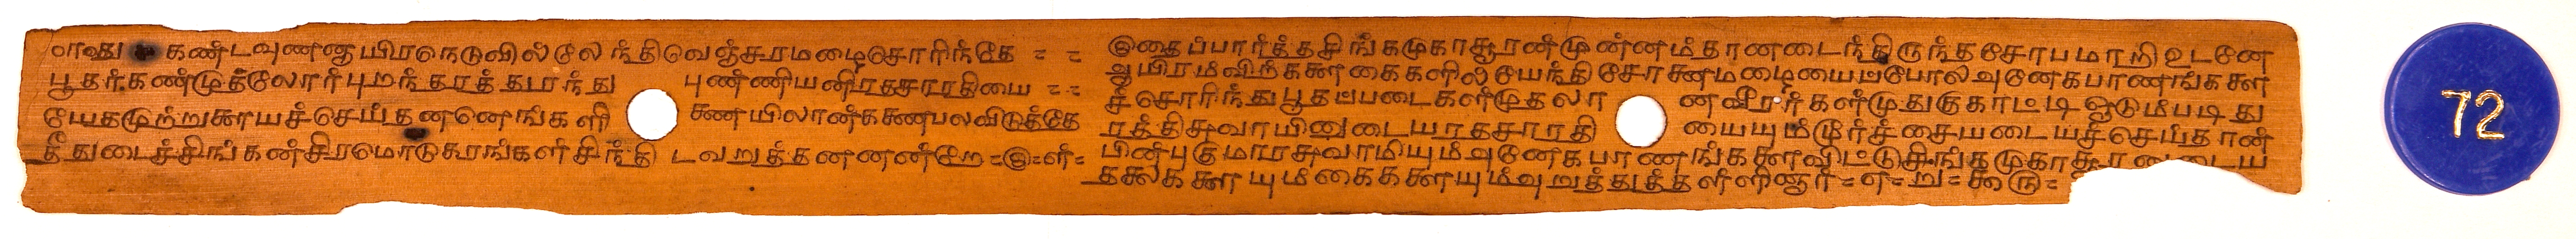 ாவது கண்டவுணனாயிரநெடுவில்லேந்திவெஞ்சரமழைசொரிந்தே = =
பூதர்கண்முத்லோர்புறந்தரத்துரந்து புண்ணியனிரதசாரதியை = =
யேதமுற்றுகாயச்செய்தனனெங்களி ணையிலான்கணைபலவிடுத்தே
தீதுடைச்சிங்கன்சிரமொடுகரங்கள்சிந்தி டவறுத்தனனன்றே =
இதைப்பார்த்தசிங்கமுகாசூரன்முன்னம்தானடைந்திருந்தசோபமாறிஉடனே
ஆயிரம்விற்களைகைகளில்யேந்திசோணமழையைப்போல்அனேகபாணங்களை
ச்சொரிந்துபூதப்படைகள்முதலா னவீரர்கள்முதுகுகாட்டிஓடும்படிது
ரத்திசுவாமியினுடையரதசாரதி யையும்மூர்ச்சையடையச்செய்தான்
பின்புகுமாரசுவாமியும்அனேகபாணங்களைவிட்டுசிங்கமுகாசூரனுடைய
தலைகளையும்கைகளையும்அறுத்துத்தள்ளினார் =
72